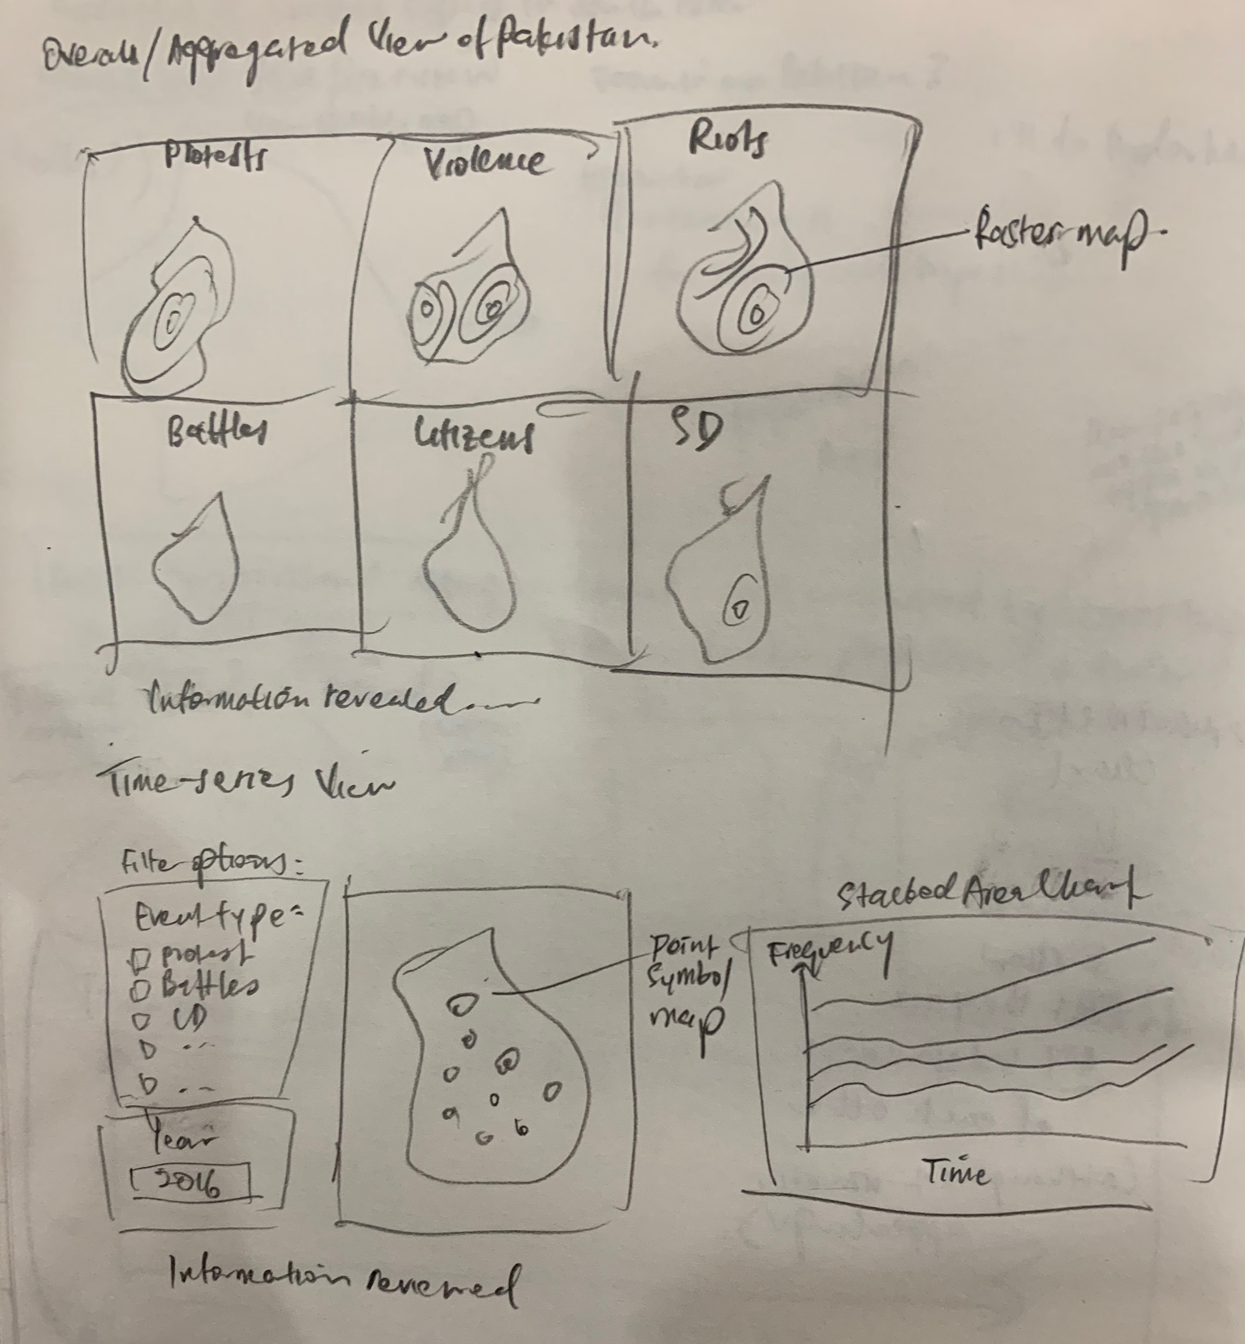 Overall/Aggregated View of Pakistan.
Protests
Violence
Riots
Raster map.
Battles
Citizens
SD
Information revealed.
Time-series View
Filter options:
Event type:
Protest
Battles
Year
2016
Point
Symbol
map
Stacked Area Chart
Frequency
Time
Information